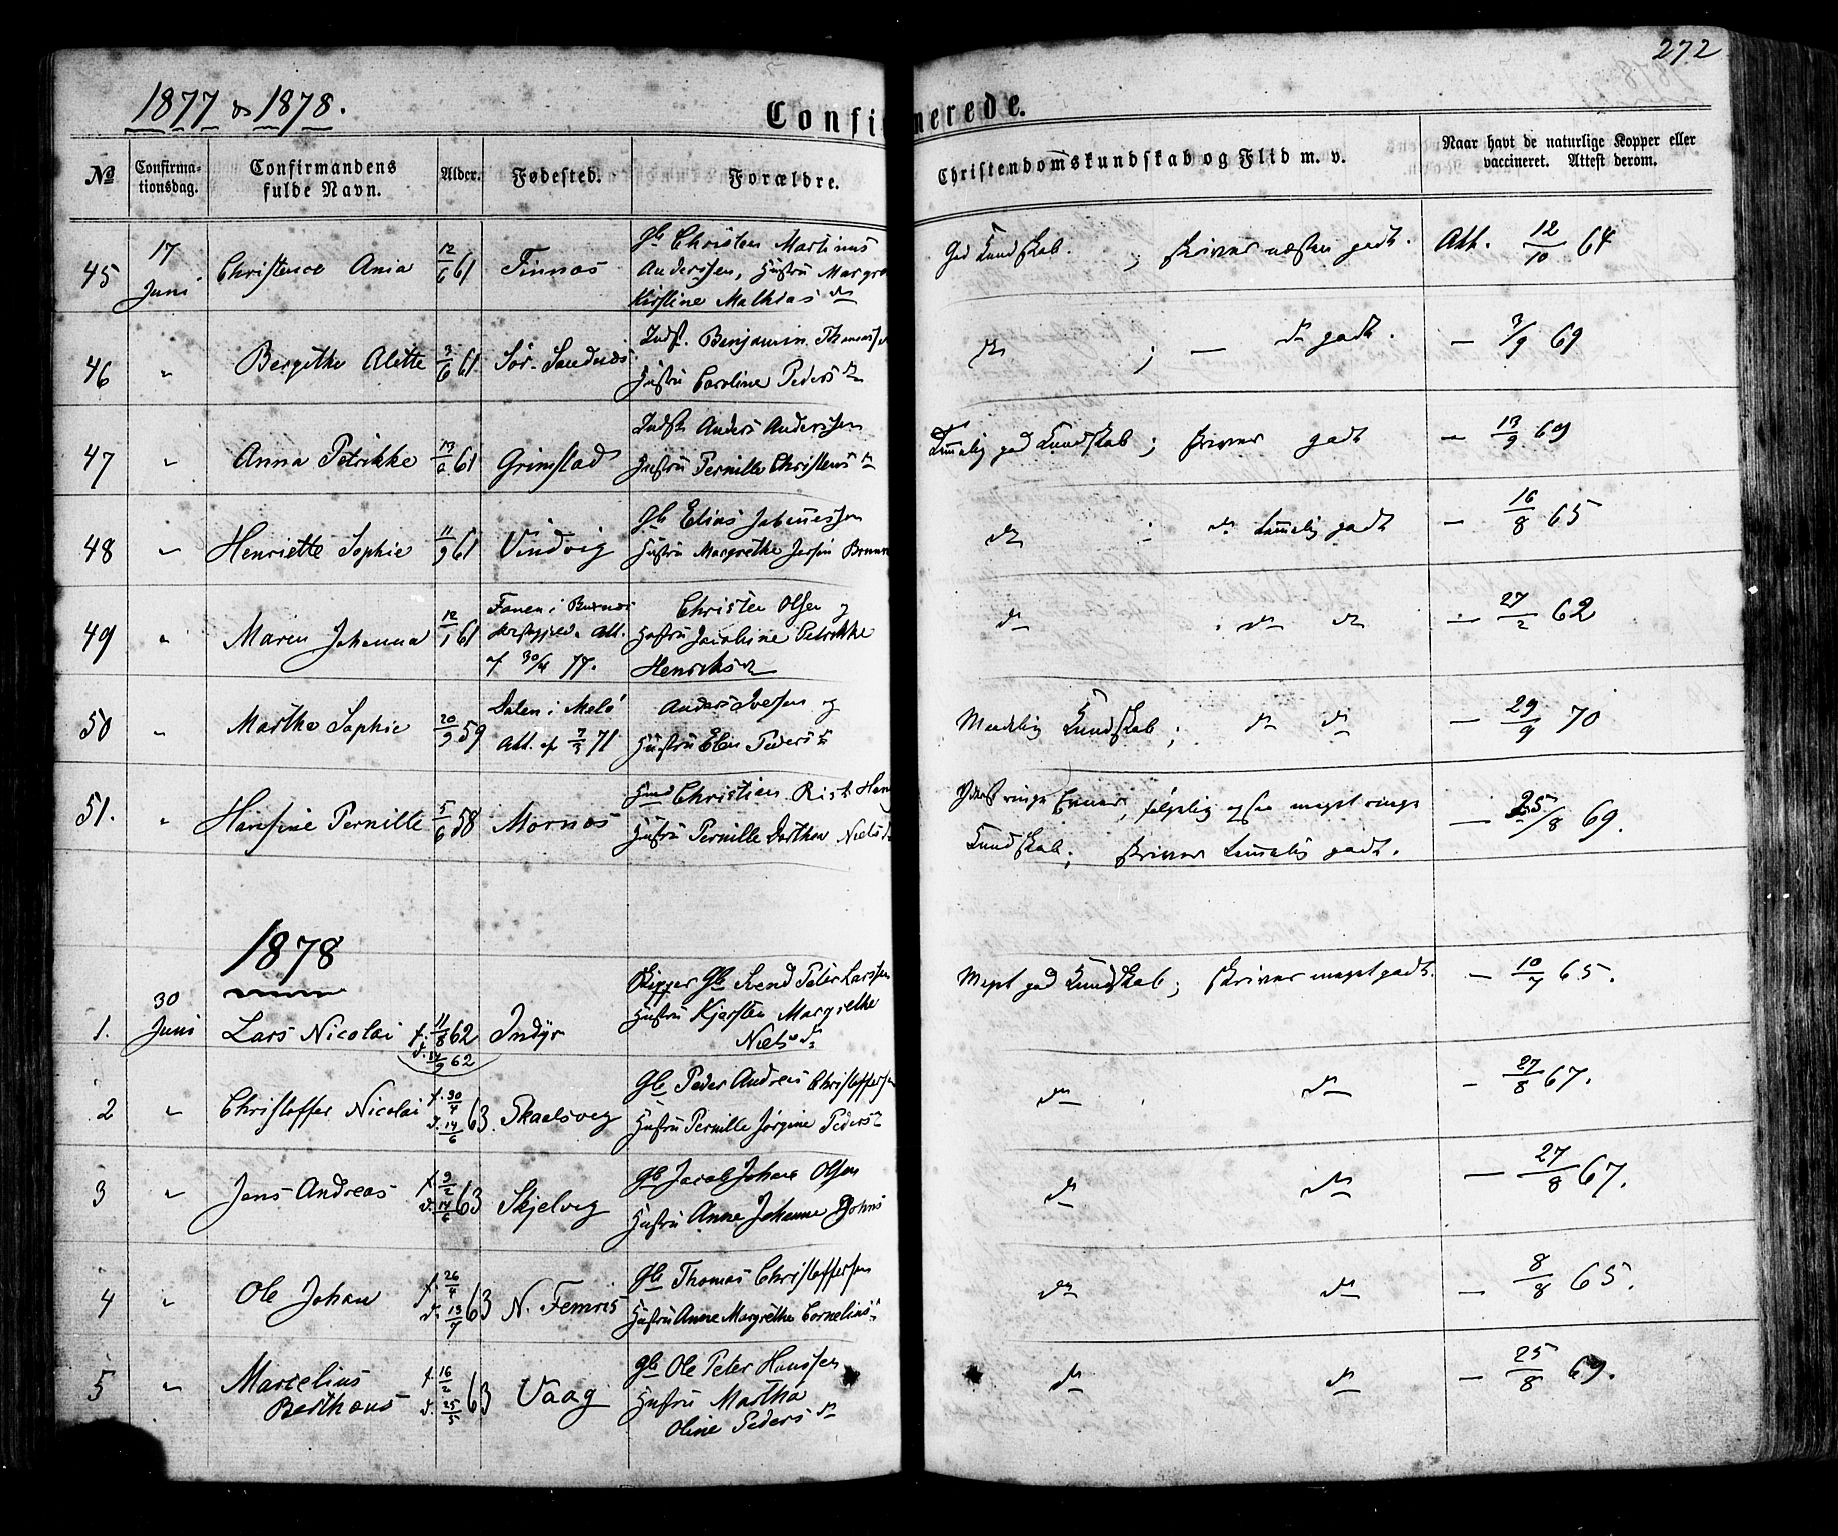 272
1877 & 1878.
Confirmerede.
№
Confirma-
tionsdag.
Confirmandens
fulde Navn.
Alder.
Fødested.
Forældre.
Christendomskundskab og Flid m. v.
Naar havt de naturlige Kopper eller
vaccineret. Attest derom.
45 17 Juni Christence Ania 12/6 61 Finnæs
Gb Christen Martinus
Anderssen, Hustru Margre
Kirstine Mathias dr
God Kundskab. ; skriver næsten godt. Att. 12/10 64
46 " Bergithe Alette 3/6 61 Sör. Sandnæs
Indst. Benjamin Thomass
Hustru Caroline Peders dr
do ; — do godt. — 3/9 69
47 " Anna Petrikke 13/6 61 Grimstad
Indst. Anders Anderssen
Hustru Pernille Christens dr
Temmelig god Kundskab ; skriver godt — 13/9 69
48 " Henriette Sophie 11/9 61 Vindvig
Gb Elias
Hustru Margrethe
do : do temmelig godt — 16/8 65
49 " Maren Johanna 12/1 61
Att.
af 30/4 77.
Christen Olsen og
Hustru Jacobine Petrikke
Henriks dr
do : do do — 27/2 62
50 " Marthe Sophie 20/9 59
Dalen i Melö
Att. af 7/3 71
Anders Iversen og
Hustru Elen Peders dr
Maadelig Kundskab ; do do — 29/9 70
51. " Hansine Pernille 5/6 58 Mornæs
Christien
Hustru Pernille Dorthea Niels d
ringe Evner, følgelig ogsaa meget ringe
Kundskab ; skriver temmelig godt. — 25/8 69.
1878
1. 30 Juni Lars Nicolai f. 11/8 62
d. 14/9 62
Indyr
Skipper Gb Svend Peter Larssen
Hustru Kjersten Margrethe
Niels dr
Meget god Kundskab ; skriver meget godt. — 10/7 65.
2 " Christoffer Nicolai f. 30/4 d. 14/6 63. Skaelsvig
Gb Peder Andreas Christoffersen
Hustru Pernille Jørgine Peders dr
do do — 27/8 67.
3 " Jens Andreas f. 9/2 d. 14/6 63 Skjelvig
Gb Jacob Johan Olsen
Hustru Anne Johanne Johns
do do — 27/8 67.
4 " Ole Johan f. 26/4 d. 13/7 63 N. Femris
Gb Thomas Christoffersen
Hustru Anne Margrethe Cornelius
do do — 8/8 65.
5 " Marcelius
Berthæus f. 16/2 d. 25/5 63 Vaag
Gb Ole Peter Hanssen
Hustru Martha
Oline Peders dr
do do — 25/8 69.